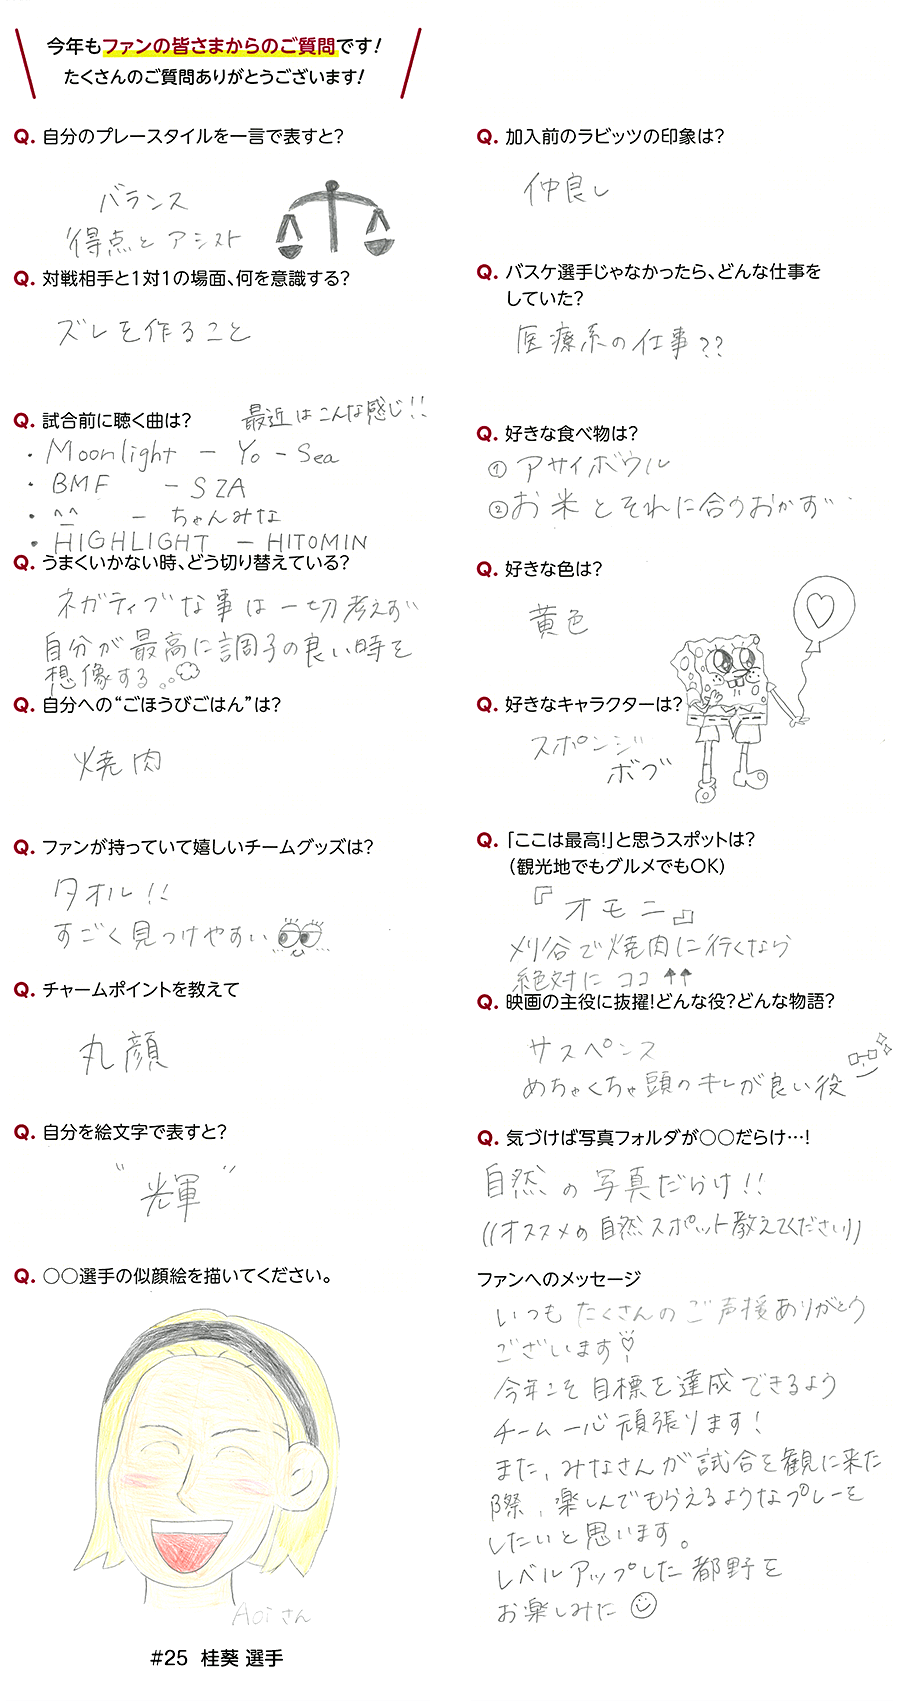 今年もファンの皆さまからのご質問です!
たくさんのご質問ありがとうございます!
Q. 自分のプレースタイルを一言で表すと?
バランス
得点とアシスト
Q. 対戦相手と1対1の場面、何を意識する?
ズレを作ること
Q. 試合前に聴く曲は?
最近はこんな感じ!!
・Moonlight − Yo-Sea
・BMF − SZA
・^^ − ちゃんみな
・HIGHLIGHT − HITOMIN
Q. うまくいかない時、どう切り替えている?
ネガティブな事は一切考えず
自分が最高に調子の良い時を
想像する。
Q. 自分への“ごほうびごはん”は?
焼肉
Q. ファンが持っていて嬉しいチームグッズは?
タオル!!
すごく見つけやすい
Q. チャームポイントを教えて
丸顔
Q. 自分を絵文字で表すと?
“光輝”
Q. 〇〇選手の似顔絵を描いてください。
Aoiさん
#25 桂葵 選手
Q. 加入前のラビッツの印象は?
仲良し
Q. バスケ選手じゃなかったら、どんな仕事を
していた?
医療系の仕事??
Q. 好きな食べ物は?
①アサイボウル
②お米とそれに合うおかず…
Q. 好きな色は?
黄色
Q. 好きなキャラクターは?
スポンジ
ボブ
Q. 「ここは最高!」と思うスポットは?
(観光地でもグルメでもOK)
『オモニ』
刈谷で焼肉に行くなら
絶対に ココ↑↑
Q. 映画の主役に抜擢!どんな役?どんな物語?
サスペンス
めちゃくちゃ頭のキレが良い役
Q. 気づけば写真フォルダが〇〇だらけ…!
自然の写真だらけ!!
((オススメの自然スポット教えてください))
ファンへのメッセージ
いつもたくさんのご声援ありがとう
ございます♡
今年こそ目標を達成できるよう
チーム一心頑張ります!
また、みなさんが試合を観に来た
際、楽しんでもらえるようなプレーを
したいと思います。
レベルアップした都野を
お楽しみに☺